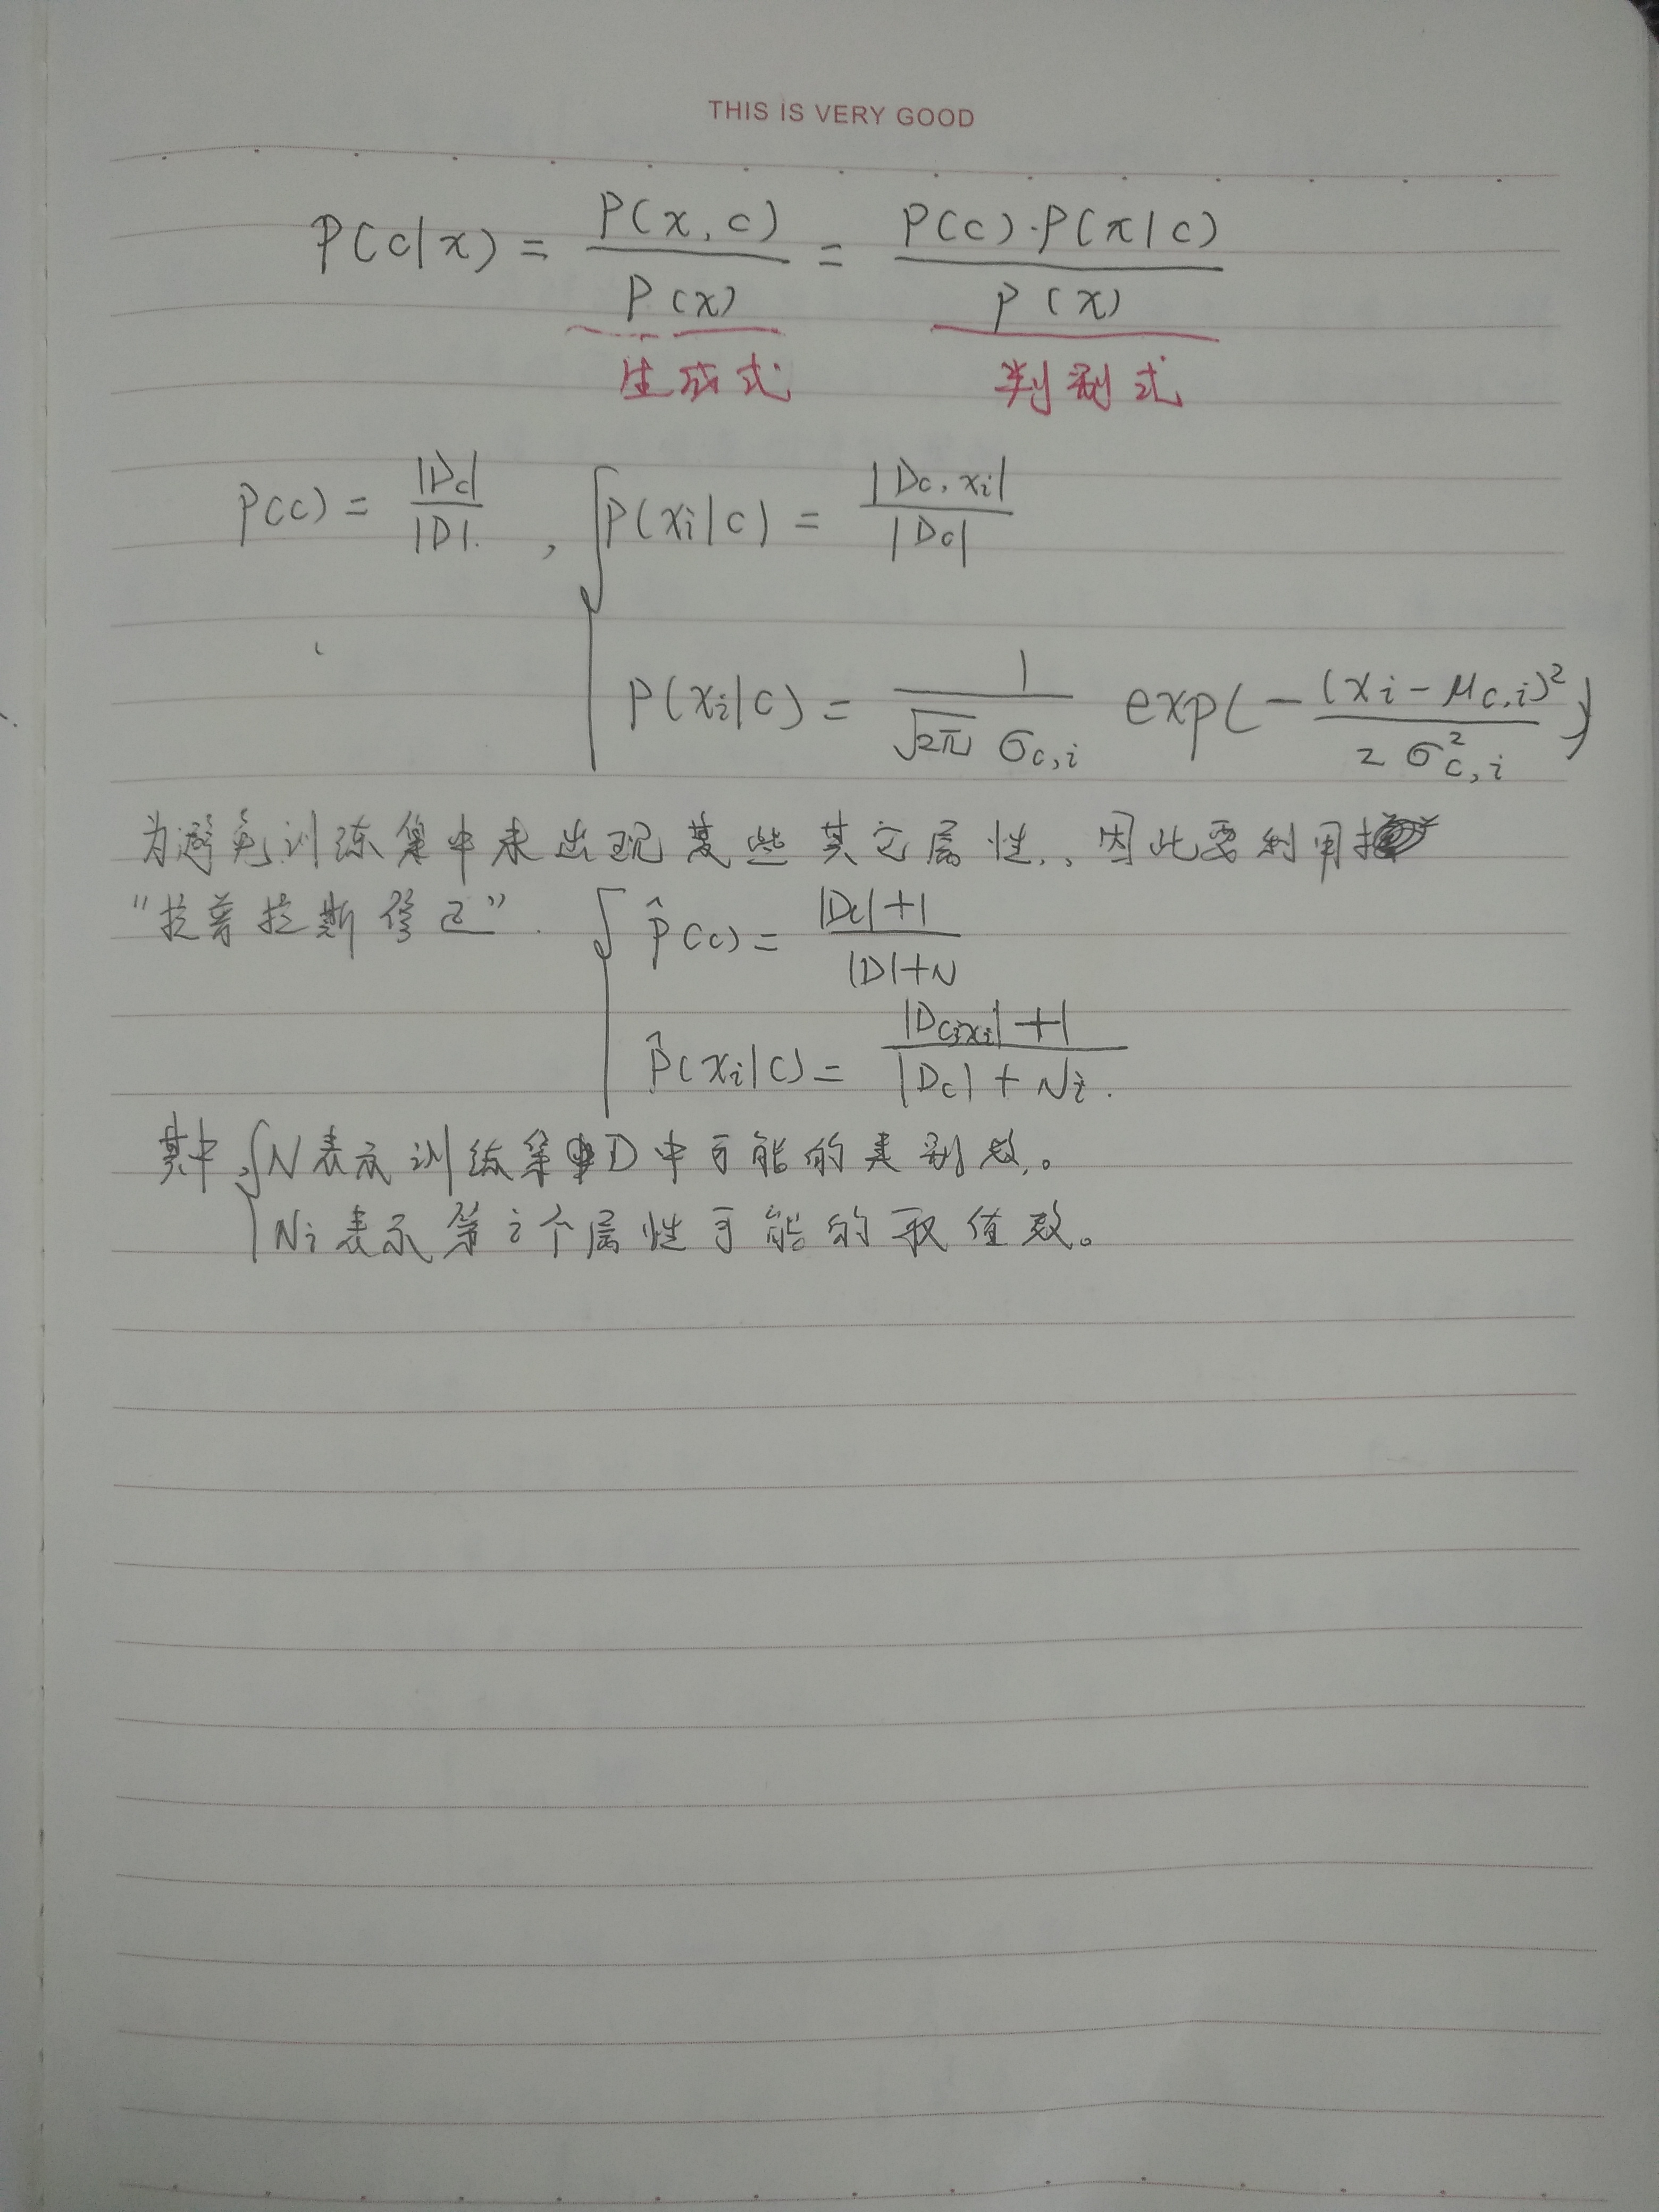 THIS IS VERY GOOD
P(c|x) = P(x,c) / P(x) = P(c)·P(x|c) / P(x)
生成式 判别式
P(c) = |Dc| / |D| , { P(xi|c) = |Dc,xi| / |Dc|
P(xi|c) = 1 / √2π σc,i exp(- (xi-μc,i)² / 2σ²c,i )
为避免训练集中未出现某些其它属性,,因此要利用
“拉普拉斯修正”. { P̂(c) = |Dc|+1 / |D|+N
P̂(xi|c) = |Dc,xi|+1 / |Dc|+Ni.
其中,{ N表示训练集D中可能的类别数。
Ni表示第i个属性可能的取值数。